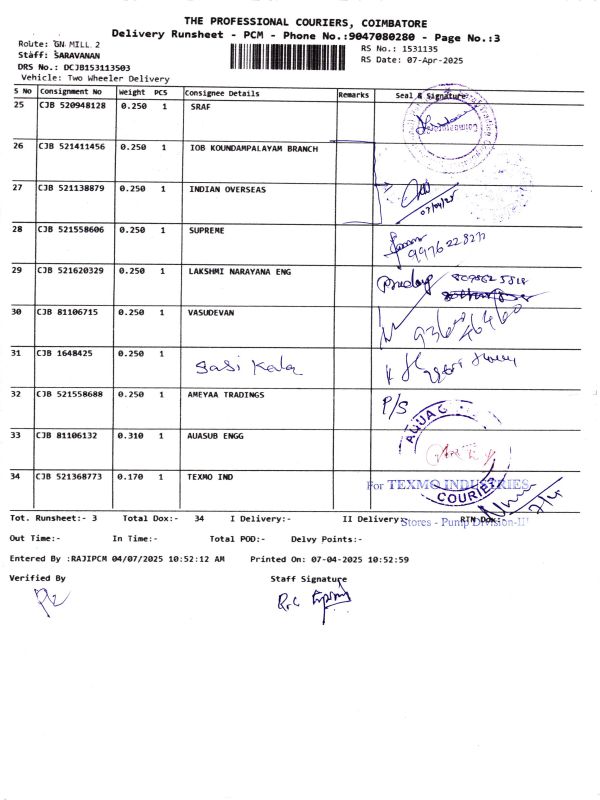 THE PROFESSIONAL COURIERS, COIMBATORE
Delivery Runsheet - PCM - Phone No.:9047080280 - Page No.:3
Route: GN MILL 2
RS No.: 1531135
Staff: SARAVANAN
RS Date: 07-Apr-2025
DRS No.: DCJB153113503
Vehicle: Two Wheeler Delivery
S No Consignment No Weight PCS Consignee Details Remarks Seal & Signature
25 CJB 520948128 0.250 1 SRAF
26 CJB 521411456 0.250 1 IOB KOUNDAMPALAYAM BRANCH
27 CJB 521138879 0.250 1 INDIAN OVERSEAS
07/04/25
28 CJB 521558606 0.250 1 SUPREME
9976228277
29 CJB 521620329 0.250 1 LAKSHMI NARAYANA ENG
30 CJB 81106715 0.250 1 VASUDEVAN
31 CJB 1648425 0.250 1 Sasi Kala
32 CJB 521558688 0.250 1 AMEYAA TRADINGS P/S
33 CJB 81106132 0.310 1 AUASUB ENGG
34 CJB 521368773 0.170 1 TEXMO IND
For TEXMO INDUSTRIES
COURIER
Tot. Runsheet:- 3 Total Dox:- 34 I Delivery:- II Delivery:- RTN Dox:-
Stores - Pump Division-II
Out Time:- In Time:- Total POD:- Delvy Points:-
Entered By :RAJIPCM 04/07/2025 10:52:12 AM Printed On: 07-04-2025 10:52:59
Verified By Staff Signature